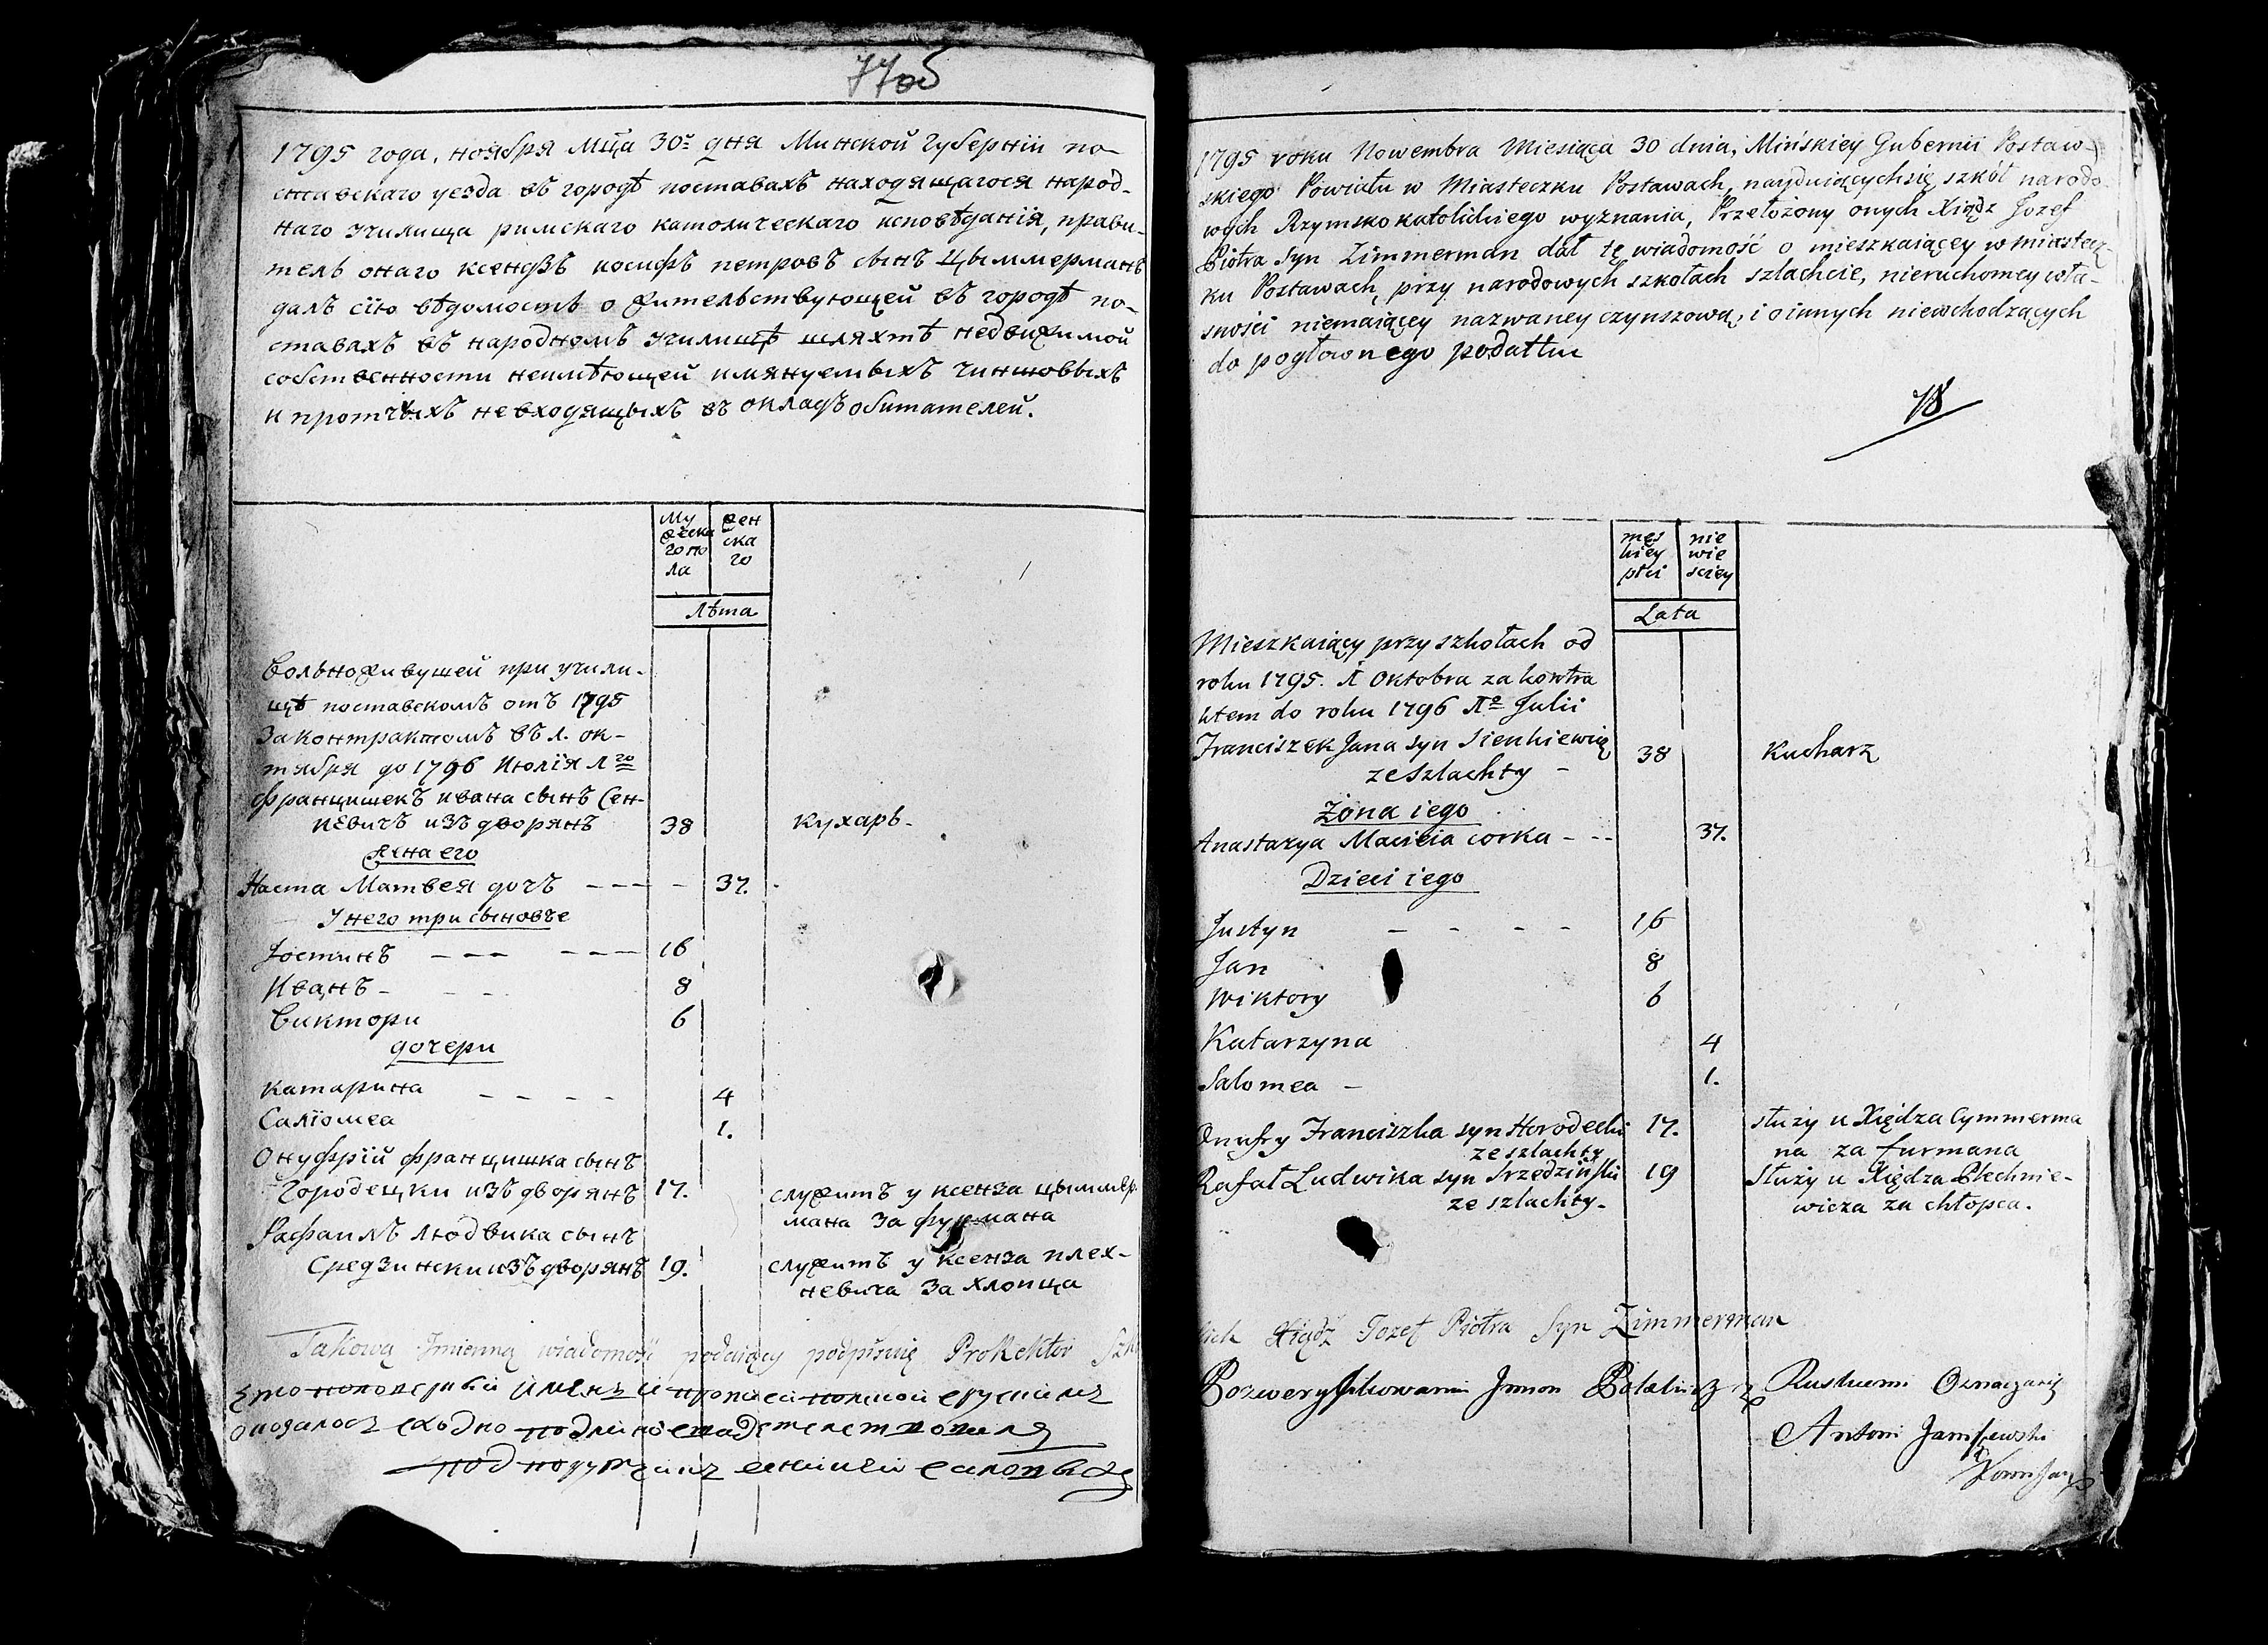 77об
1795 года, ноября мца 30º дня Минской губернїи по-
ставскаго уезда въ городѣ поставахъ находящагося народ-
наго училища римскаго католическаго исповѣданїя, прави-
тель онаго ксендзъ иосифъ петровъ сынъ Цыммерманъ
далъ сїю вѣдомость о жительствующей въ городѣ по-
ставахъ въ народномъ училищѣ шляхтѣ недвижимой
собственности неимѣющей имянуемыхъ чиншовыхъ
и протчихъ невходящыхъ въ окладъ обитателей.
Му
жеска
го по
ла
жен
ска
го
Лѣта
Вольноживущей при учили-
щѣ поставскомъ отъ 1795
Законтрактомъ въ 1. ок-
тября до 1796 Июлїя 1го
францишекъ ивана сынъ Сен-
кевичъ изъ дворянъ 38 кухаръ-
Жена его
Наста Матвея дочъ - - - - 37.
У него три сыновъе
Юстинъ - - - - - - 16
Иванъ - - - 8
Виктори 6
дочери
Катарина - - - - 4
Салїомеа 1.
Онуфрїй францишка сынъ
Городецки изъ дворянъ 17. служитъ у ксенза цыммер
мана за фурмана
Рафаилъ людвика сынъ
Средзински изъ дворянъ 19. служитъ у ксенза плех-
невича за хлопца
Takową Imienną wiadomość podaiący podpisuię ProRektor
1795 roku Nowembra Miesiąca 30 dnia, Mińskiey Gubernii Postaw-
skiego Powiatu w Miasteczku Postawach, nayduiącychsię szkół narodo-
wych Rzymsko katolickiego wyznania, Przełożony onych Xiądz Jozef
Piotra Syn Zimmerman dał tę wiadomość o mieszkaiącey w miastecz-
ku Postawach, przy narodowych szkołach szlachcie, nieruchomey wła-
sności niemaiącey nazwaney czynszową, i o innych niewchodzących
do pogłownego podatku
78
męs
kiey
płci
nie
wie
sciey
Lata
Mieszkaiący przy szkołach od
roku 1795. 1 Oktobra za kontra
ktem do roku 1796 1º Julii
Franciszek Jana syn Sienkiewicz 38 Kucharz
ze Szlachty -
Żona iego
Anastazya Macieia corka - - - 37.
Dzieci iego
Justyn - - - - 16
Jan 8
Wiktory 6
Katarzyna 4
Salomea - 1.
Onufry Franciszka syn Horodecki 17. służy u Xiędza Cymmerma
ze szlachty na za furmana
Rafał Ludwika syn Srzedziński 19 służy u Xiędza Plechnie-
ze szlachty. wicza za chłopca.
Xiądz Jozef Piotra Syn Zimmerman
Ruskiemi
Antoni